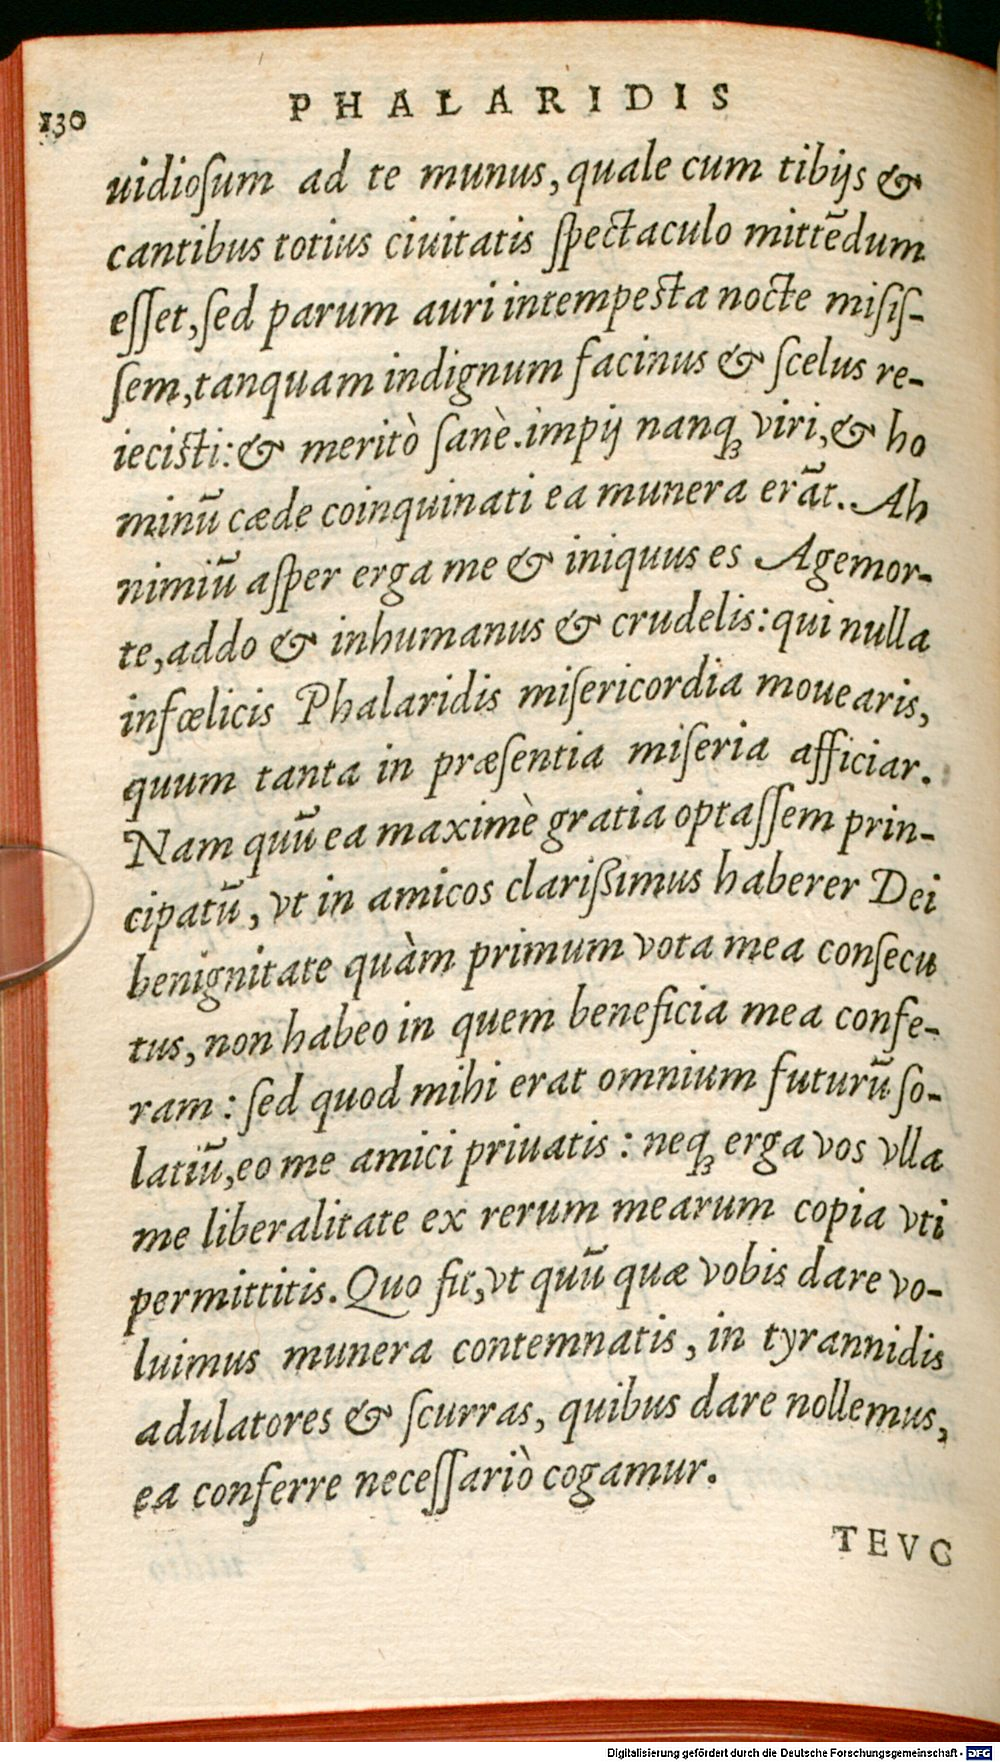 130 PHALARIDIS
uidioſum ad te munus, quale cum tibijs &
cantibus totius ciuitatis ſpectaculo mittẽdum
eſſet, ſed parum auri intempesta nocte miſiſ-
ſem, tanquam indignum facinus & ſcelus re-
iecisti: & meritò ſanè. impij nanqꝫ viri, & ho
minũ cæde coinquinati ea munera erãt. Ah
nimiũ aſper erga me & iniquus es Agemor-
te, addo & inhumanus & crudelis: qui nulla
infœlicis Phalaridis miſericordia mouearis,
quum tanta in præſentia miſeria afficiar.
Nam quũ ea maximè gratia optaſſem prin-
cipatũ, vt in amicos clarißimus haberer Dei
benignitate quàm primum vota mea conſecu
tus, non habeo in quem beneficia mea confe-
ram: ſed quod mihi erat omnium futurũ ſo-
latiũ, eo me amici priuatis: neqꝫ erga vos vlla
me liberalitate ex rerum mearum copia vti
permittitis. Quo fit, vt quũ quæ vobis dare vo-
luimus munera contemnatis, in tyrannidis
adulatores & ſcurras, quibus dare nollemus,
ea conferre neceſſariò cogamur.
TEVC
Digitalisierung gefördert durch die Deutsche Forschungsgemeinschaft - DFG